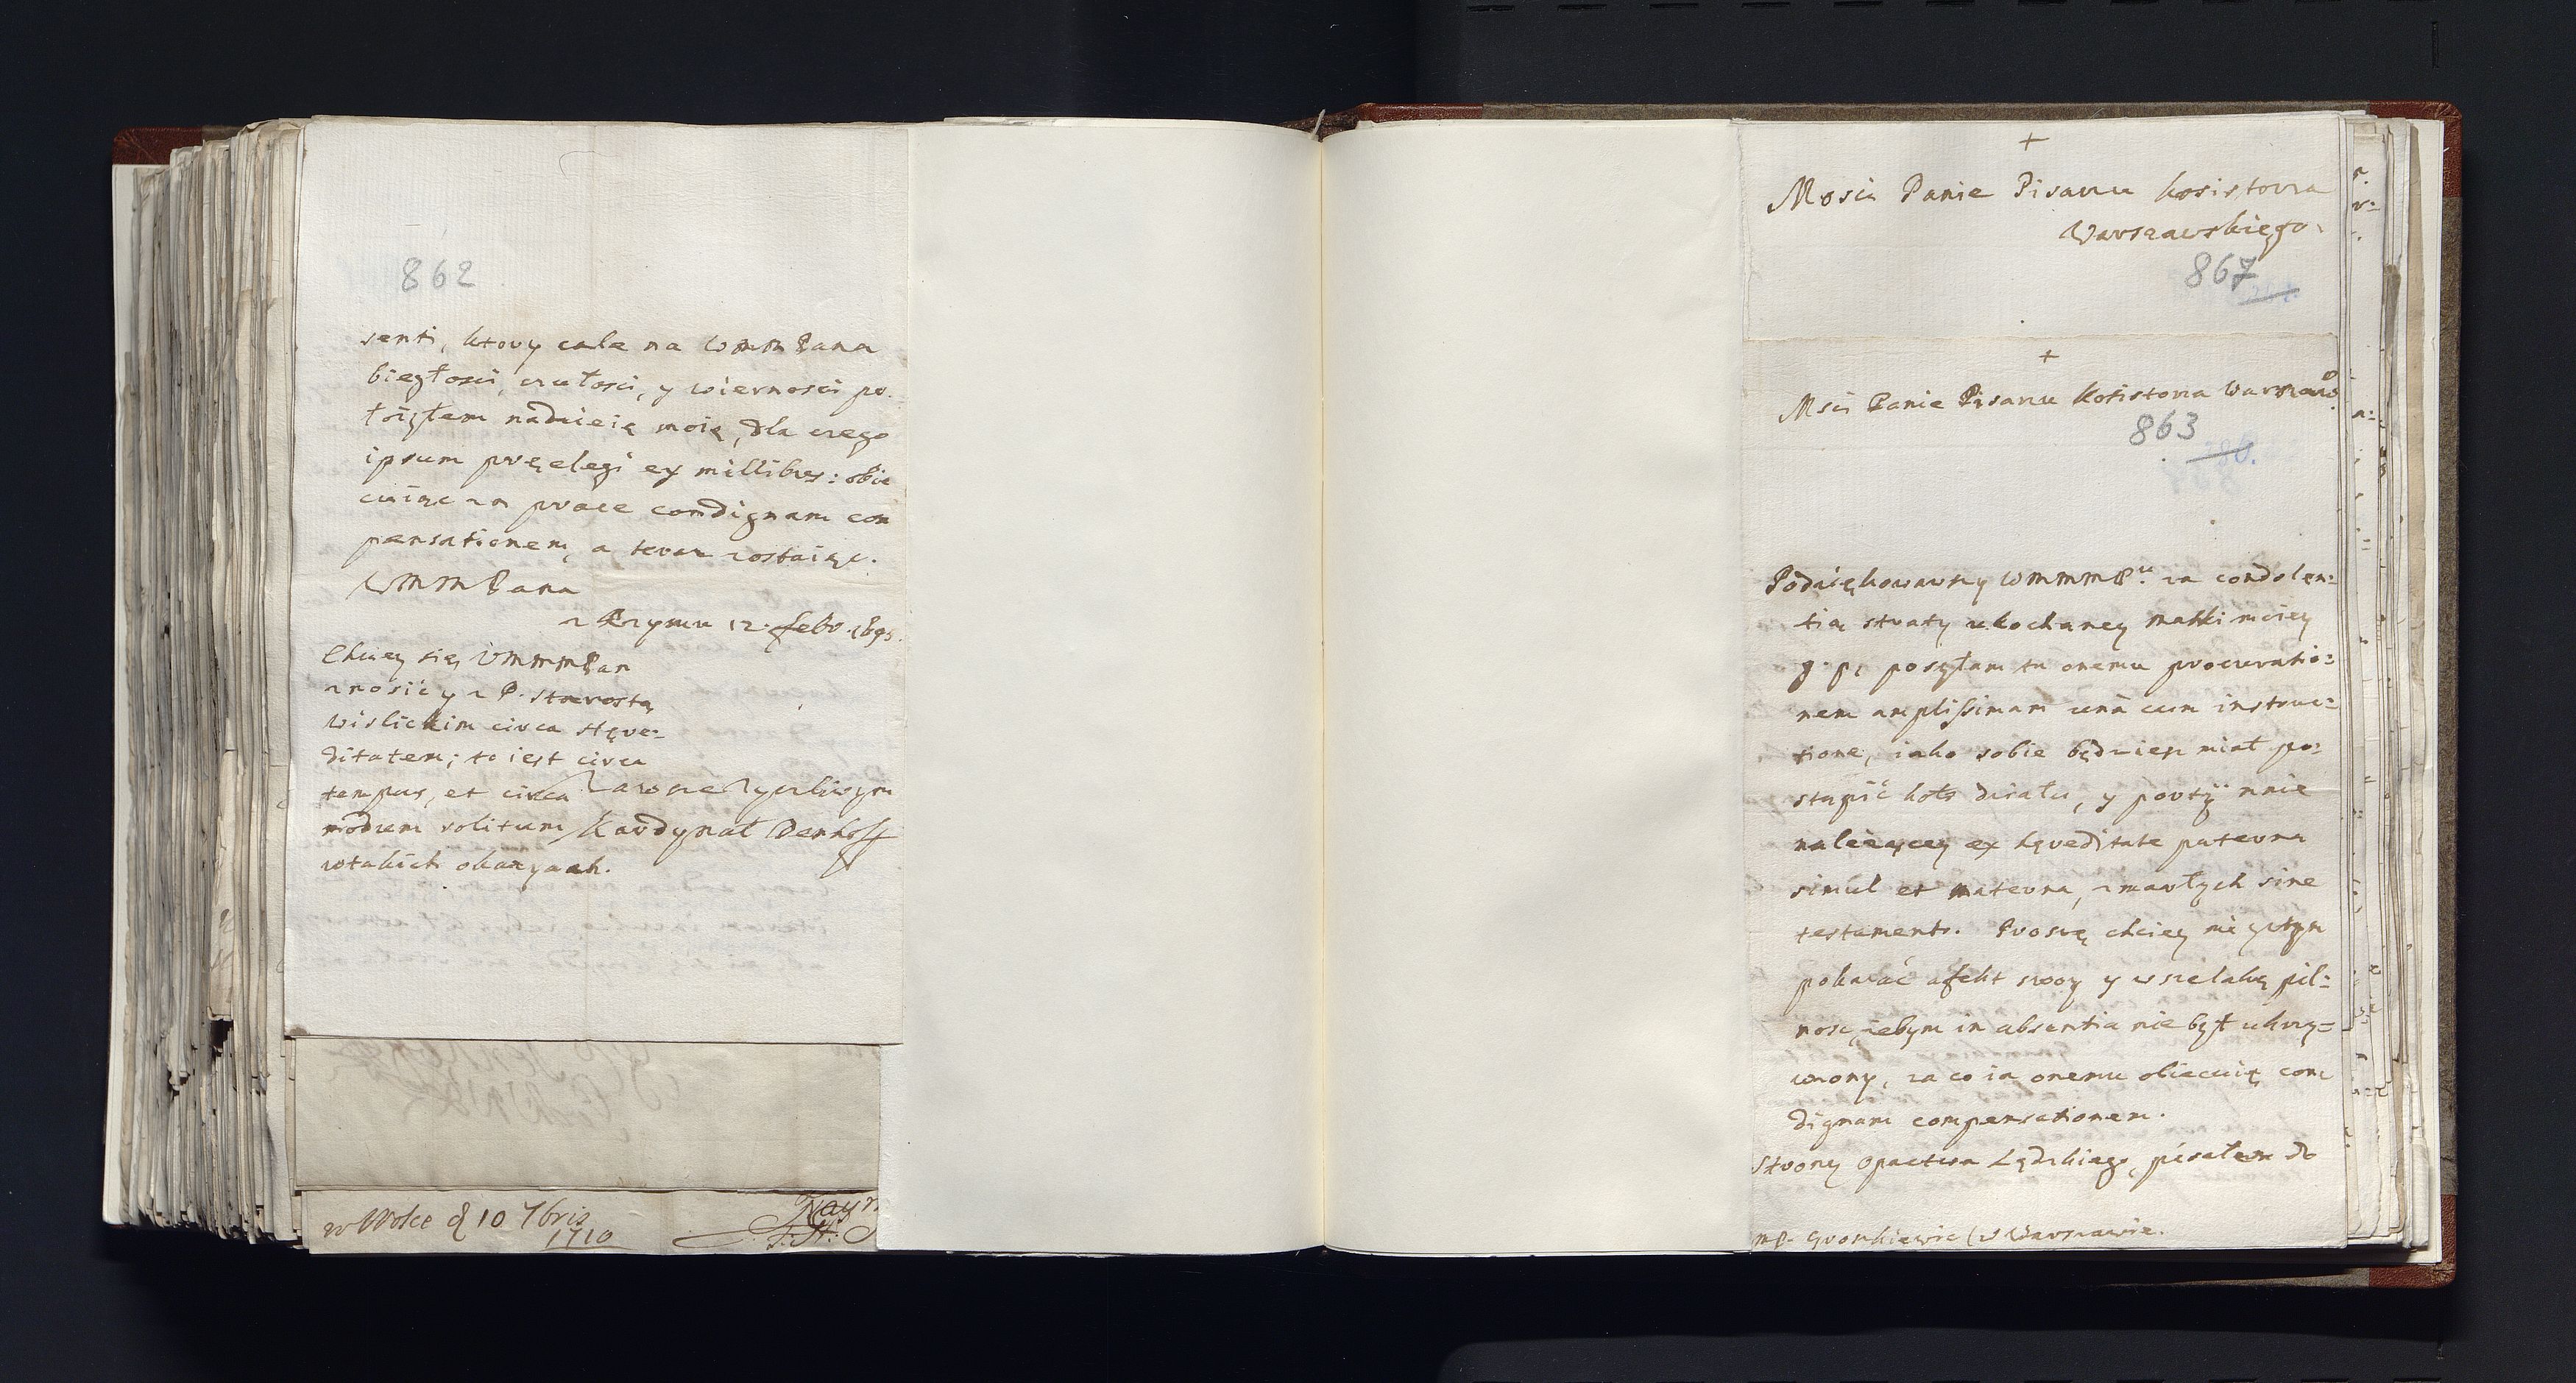 862
senti, ktory cale na WMMPana
biegłosci, czułosci, y wiernosci po-
łozyłem nadzieię moię, dla czego
ipsum pręelegi ex millibus: obie
cuiąc za prace condignam con
pensationem, a teraz zostaięc.
WMMPana
z Rzymu 12. febr. 1695.
Chciey się VMMMPan
znosic y z P. Starostą
Wislickim circa Hęre-
ditatem; to iest circa
tempus, et circa
modum solitum
w takich okazyach.
zawsze zyczliwym
Kardynał Denhoff
w Wolce d 10 7bris
1710
Nayn
+
Mosci Panie Pisarzu kosistorza
Warszawskiego.
867
+
Msci Panie Pisarzu Kosistorza Warszaws.
863
Podziękowawszy WMMMPu. za condolen:
tią straty ukochaney Matki moiey
g. p. posyłam tu onemu procuratio:
nem amplissimam unà cum instruc:
tione, iako sobie będziesz miał po:
stąpić koło działu, y portÿ mnie
należącey ex hęreditate paterna
simul et materna, zmarłych sine
testamento. Proszę chciey mi y w tym
pokazać afekt swoy y wszelaką pil:
nosc, żebym in absentia nie był ukrzy=
wdzony, za co ia onemu obiecuię con
dignam compensationem.
Strony Opactwa Lędzkiego, pisałem do
MP. Gronkiewic (w Warszawie.